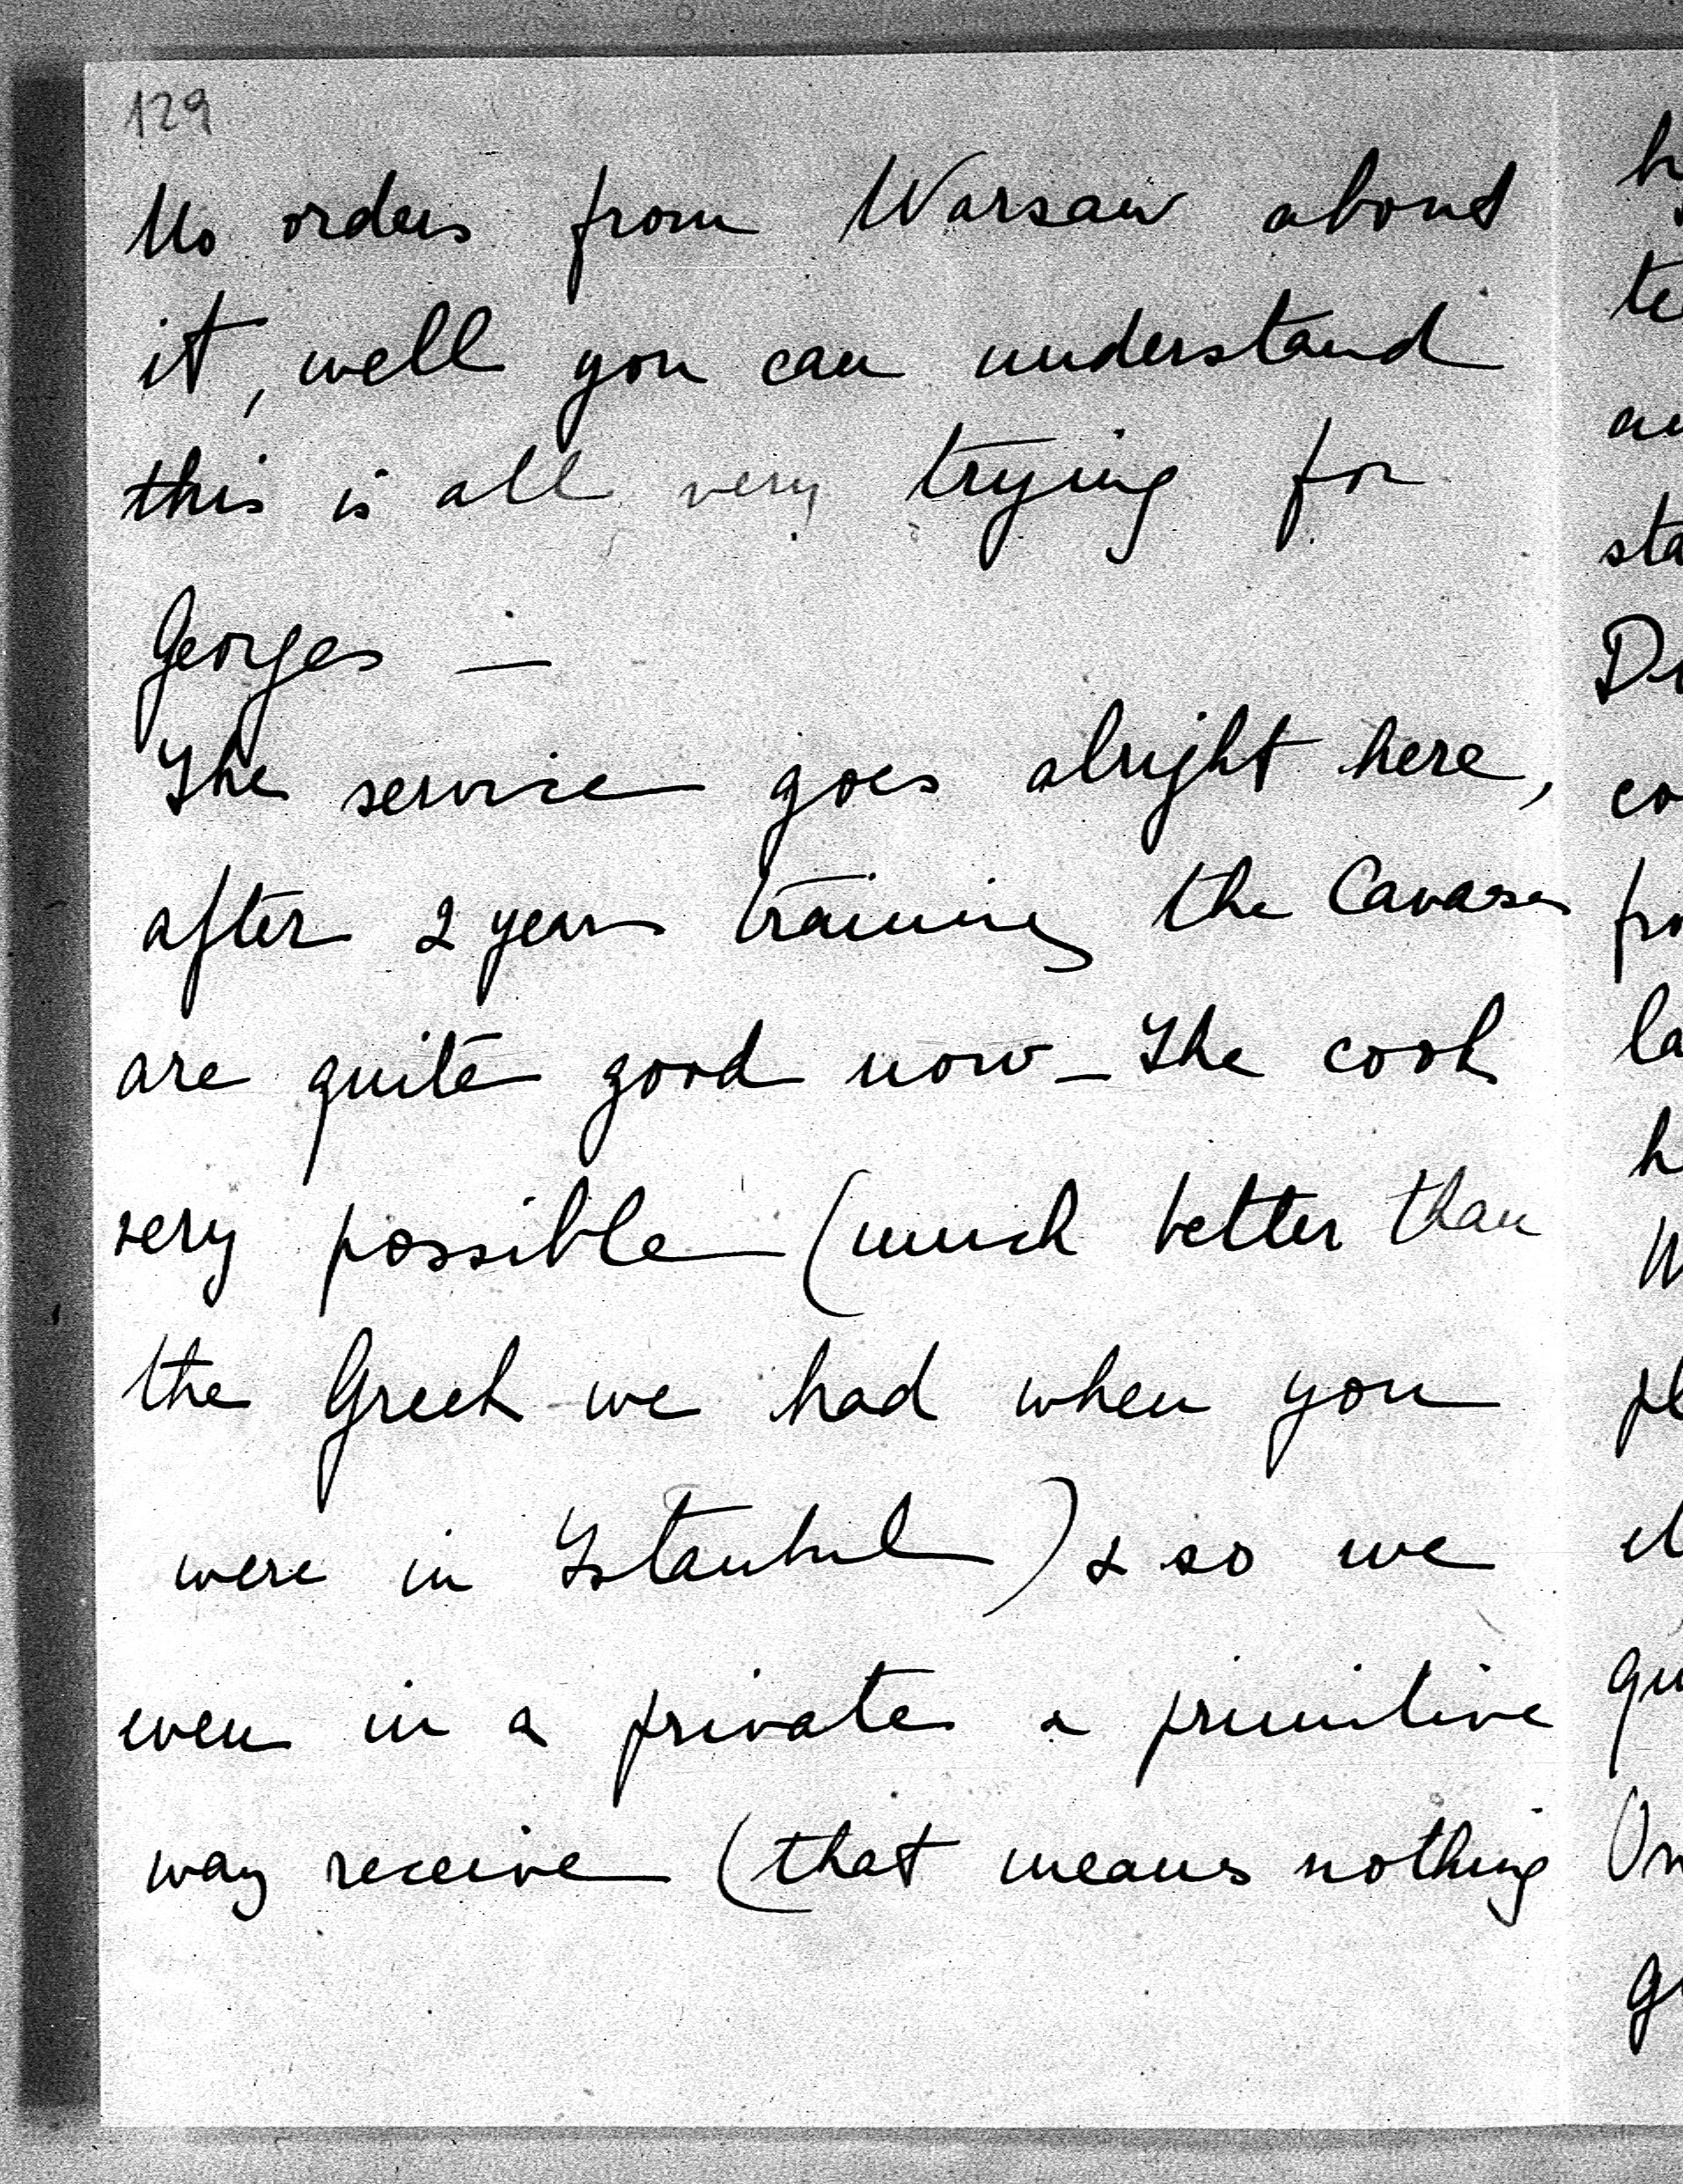 129
No orders from Warsaw about
it, well you can understand
this is all very trying for
Georges —
The service goes alright here,
after 2 years training the Cavases
are quite good now — The cook
very possible (much better than
the Greek we had when you
were in Istanbul) & so we
even in a private & primitive
way receive (that means nothing